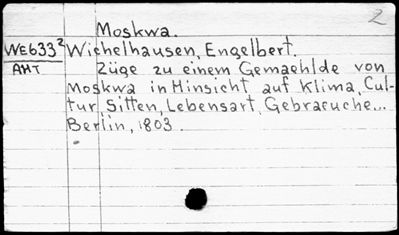 2
Moskwa.
WE633² Wichelhausen, Engelbert.
AHT Züge zu einem Gemaehlde von
Moskwa in Hinsicht auf Klima, Cul-
tur, Sitten, Lebensart, Gebraeuche...
Berlin, 1803.